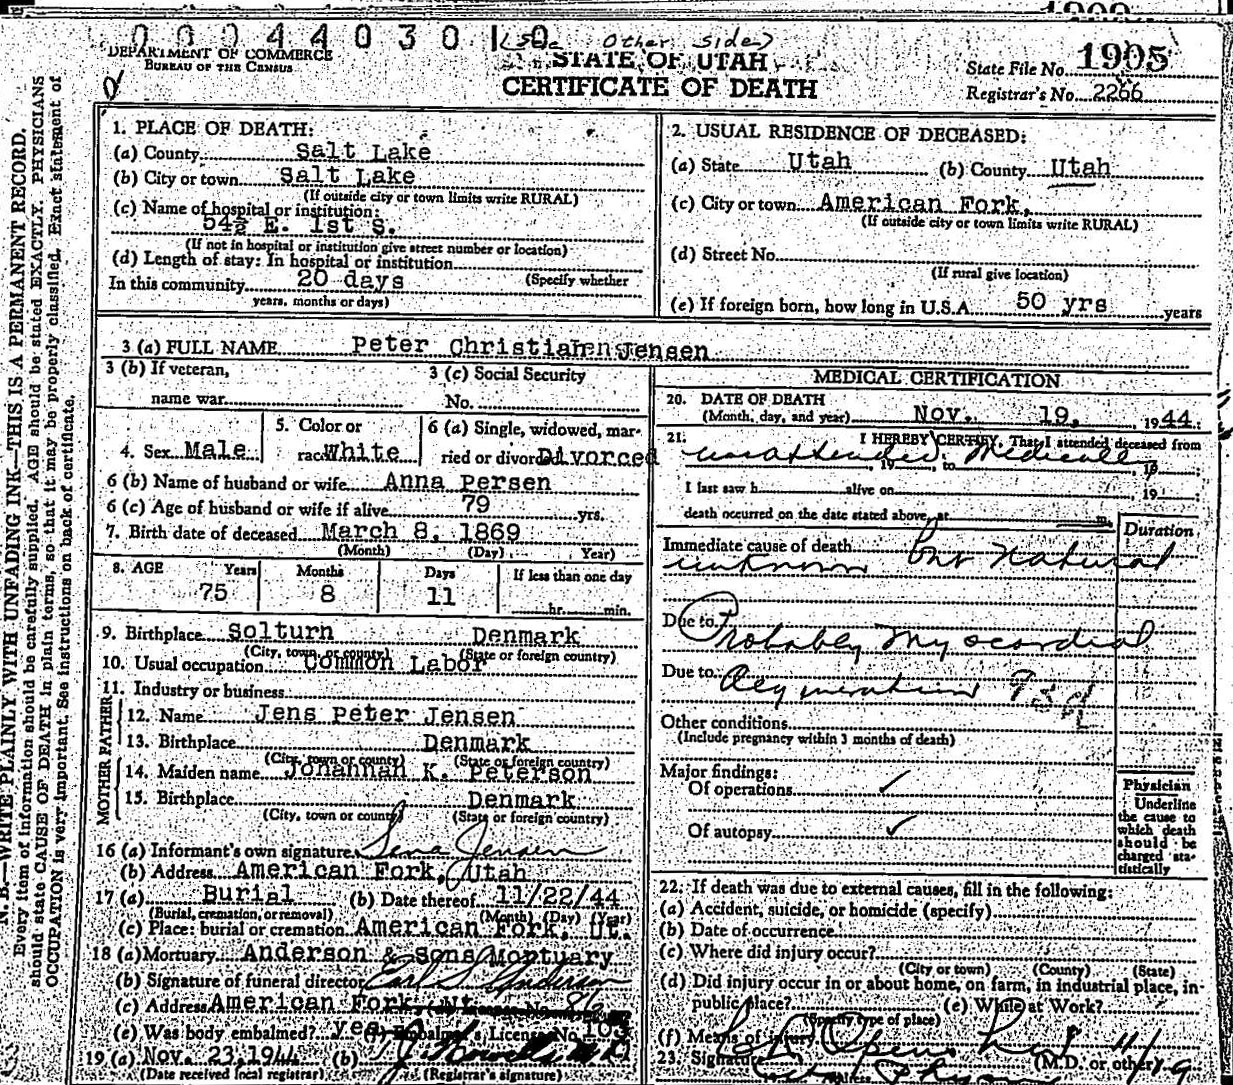 0 0 0 4 4 0 3 0 1 0 (See Other side)
DEPARTMENT OF COMMERCE
BUREAU OF THE CENSUS
STATE OF UTAH
CERTIFICATE OF DEATH
State File No. 1905
Registrar's No. 2266
N. B.—WRITE PLAINLY WITH UNFADING INK—THIS IS A PERMANENT RECORD.
Every item of information should be carefully supplied. AGE should be stated EXACTLY. PHYSICIANS
should state CAUSE OF DEATH in plain terms, so that it may be properly classified. Exact statement of
OCCUPATION is very important. See instructions on back of certificate.
1. PLACE OF DEATH:
(a) County Salt Lake
(b) City or town Salt Lake
(If outside city or town limits write RURAL)
(c) Name of hospital or institution:
54½ E. 1st S.
(If not in hospital or institution give street number or location)
(d) Length of stay: In hospital or institution
In this community 20 days (Specify whether
years, months or days)
2. USUAL RESIDENCE OF DECEASED:
(a) State Utah (b) County Utah
(c) City or town American Fork,
(If outside city or town limits write RURAL)
(d) Street No.
(If rural give location)
(e) If foreign born, how long in U.S.A. 50 yrs years
3 (a) FULL NAME Peter Christian Jensen
3 (b) If veteran, 3 (c) Social Security
name war No.
4. Sex Male
5. Color or
race White
6 (a) Single, widowed, mar-
ried or divorced Divorced
6 (b) Name of husband or wife Anna Persen
6 (c) Age of husband or wife if alive 79 yrs.
7. Birth date of deceased March 8, 1869
(Month) (Day) (Year)
8. AGE Years Months Days If less than one day
75 8 11 hr. min.
9. Birthplace Solturn Denmark
(City, town, or county) (State or foreign country)
10. Usual occupation Common Labor
11. Industry or business
FATHER
12. Name Jens Peter Jensen
13. Birthplace Denmark
(City, town or county) (State or foreign country)
MOTHER
14. Maiden name Johannah K. Peterson
15. Birthplace Denmark
(City, town or county) (State or foreign country)
16 (a) Informant's own signature Sena Jensen
(b) Address American Fork, Utah
17 (a) Burial (b) Date thereof 11/22/44
(Burial, cremation, or removal) (Month) (Day) (Year)
(c) Place: burial or cremation American Fork, Ut.
18 (a) Mortuary Anderson & Sons Mortuary
(b) Signature of funeral director Earl S. Anderson
(c) Address American Fork,
(e) Was body embalmed? yes Embalmer's License No. 103
19 (a) Nov. 23, 1944 (b)
(Date received local registrar) (Registrar's signature)
MEDICAL CERTIFICATION
20. DATE OF DEATH
(Month, day, and year) Nov. 19, 1944
21. I HEREBY CERTIFY, That I attended deceased from
unattended, 19 , to Medically 19 ;
I last saw h alive on , 19 ;
death occurred on the date stated above, at m.
Duration
Immediate cause of death but Natural
unknown
Due to Probably Myocardial
Due to Degeneration 93d
Other conditions
(Include pregnancy within 3 months of death)
Major findings:
Of operations ✓
Of autopsy ✓
Physician
Underline
the cause to
which death
should be
charged sta-
tistically
22. If death was due to external causes, fill in the following:
(a) Accident, suicide, or homicide (specify)
(b) Date of occurrence
(c) Where did injury occur?
(City or town) (County) (State)
(d) Did injury occur in or about home, on farm, in industrial place, in
public place? (e) While at Work?
(Specify type of place)
(f) Means of injury
23. Signature (M.D. or other)